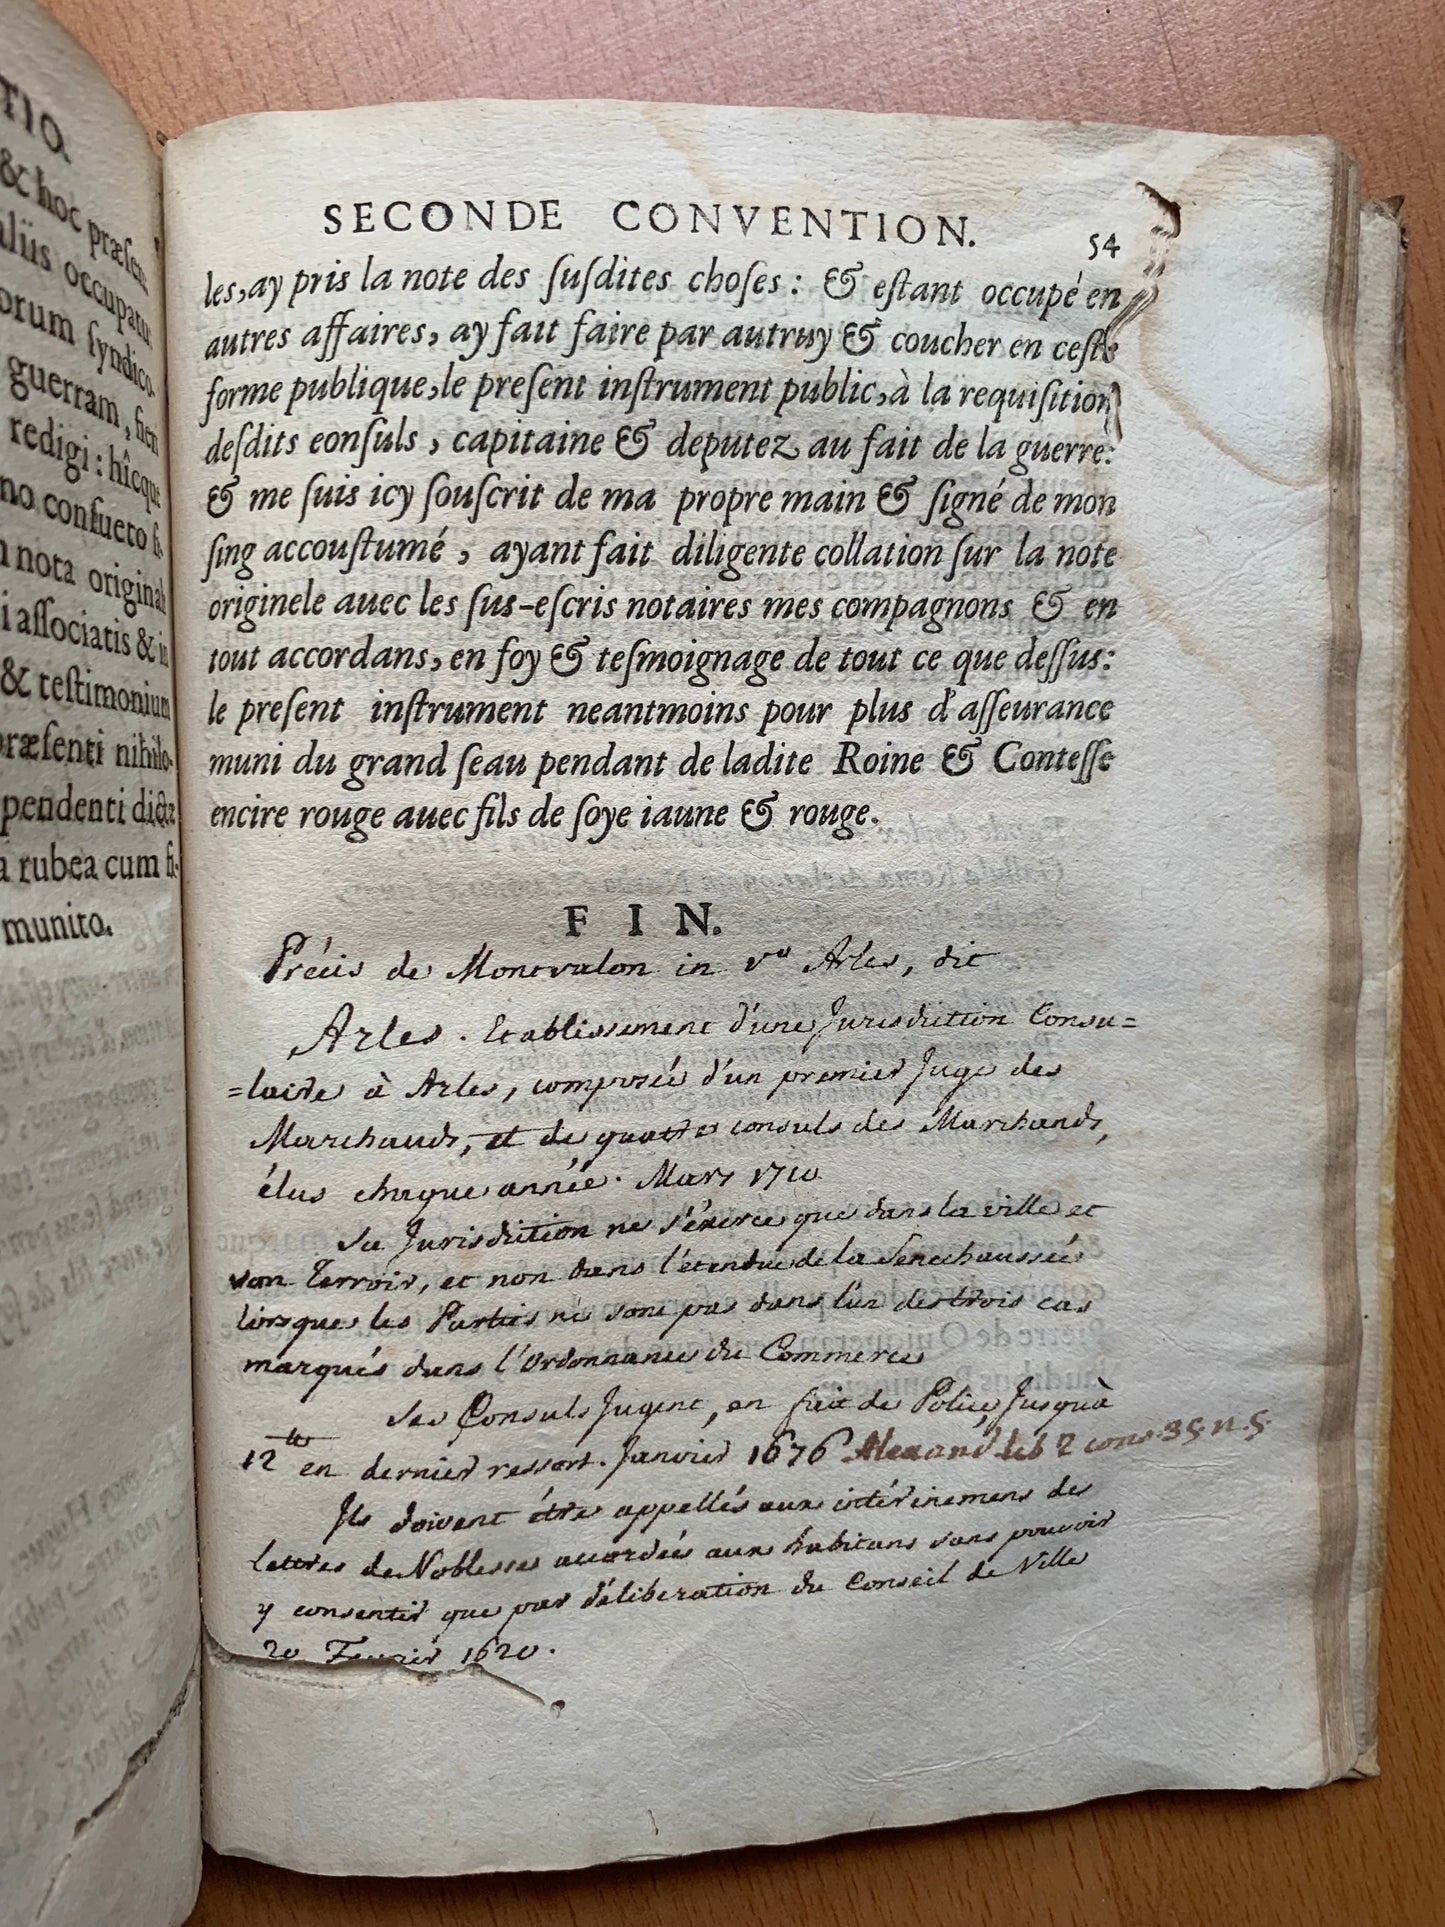 TIO.
& hoc præsen
aliis occupatu
orum syndico-
guerram, fieri
redigi: hîcque
no consueto si-
nota originali
i associatis & in
& testimonium
ræsenti nihilo-
pendenti dictæ
a rubea cum fi-
munito.
SECONDE CONVENTION. 54
les, ay pris la note des suſdites choſes : & eſtant occupé en
autres affaires, ay fait faire par autruy & coucher en ceſte
forme publique, le preſent inſtrument public, à la requiſition
deſdits eonſuls, capitaine & deputez au fait de la guerre:
& me ſuis icy ſouſcrit de ma propre main & ſigné de mon
ſing accouſtumé, ayant fait diligente collation ſur la note
originele auec les ſus-eſcris notaires mes compagnons & en
tout accordans, en foy & teſmoignage de tout ce que deſſus:
le preſent inſtrument neantmoins pour plus d'aſſeurance
muni du grand ſeau pendant de ladite Roine & Conteſſe
encire rouge auec fils de ſoye iaune & rouge.
FIN.
Précis de Montvalon in v° Arles, dit
Arles. Etablissement d'une Jurisdiction Consu=
=laire à Arles, composée d'un premier Juge des
Marchands, et de quatre consuls des Marchands,
élus chaque année. Mars 1710
Sa Jurisdiction ne s'éxerce que dans la ville et
son Terroir, et non dans l'étendue de la Senechaussée
lorsque les Parties ne sont pas dans l'un des trois cas
marqués dans l'Ordonnance du Commerce
Ses Consuls Jugent, en fait de Police, Jusqu'à
12 tt en dernier ressort. Janvier 1676 cons. 35. n. 5.
Ils doivent étre appellés aux intérinemens des
lettres de Noblesse accordées aux habitans sans pouvoir
y consentir que par déliberation du Conseil de Ville
20 Fevrier 1620.